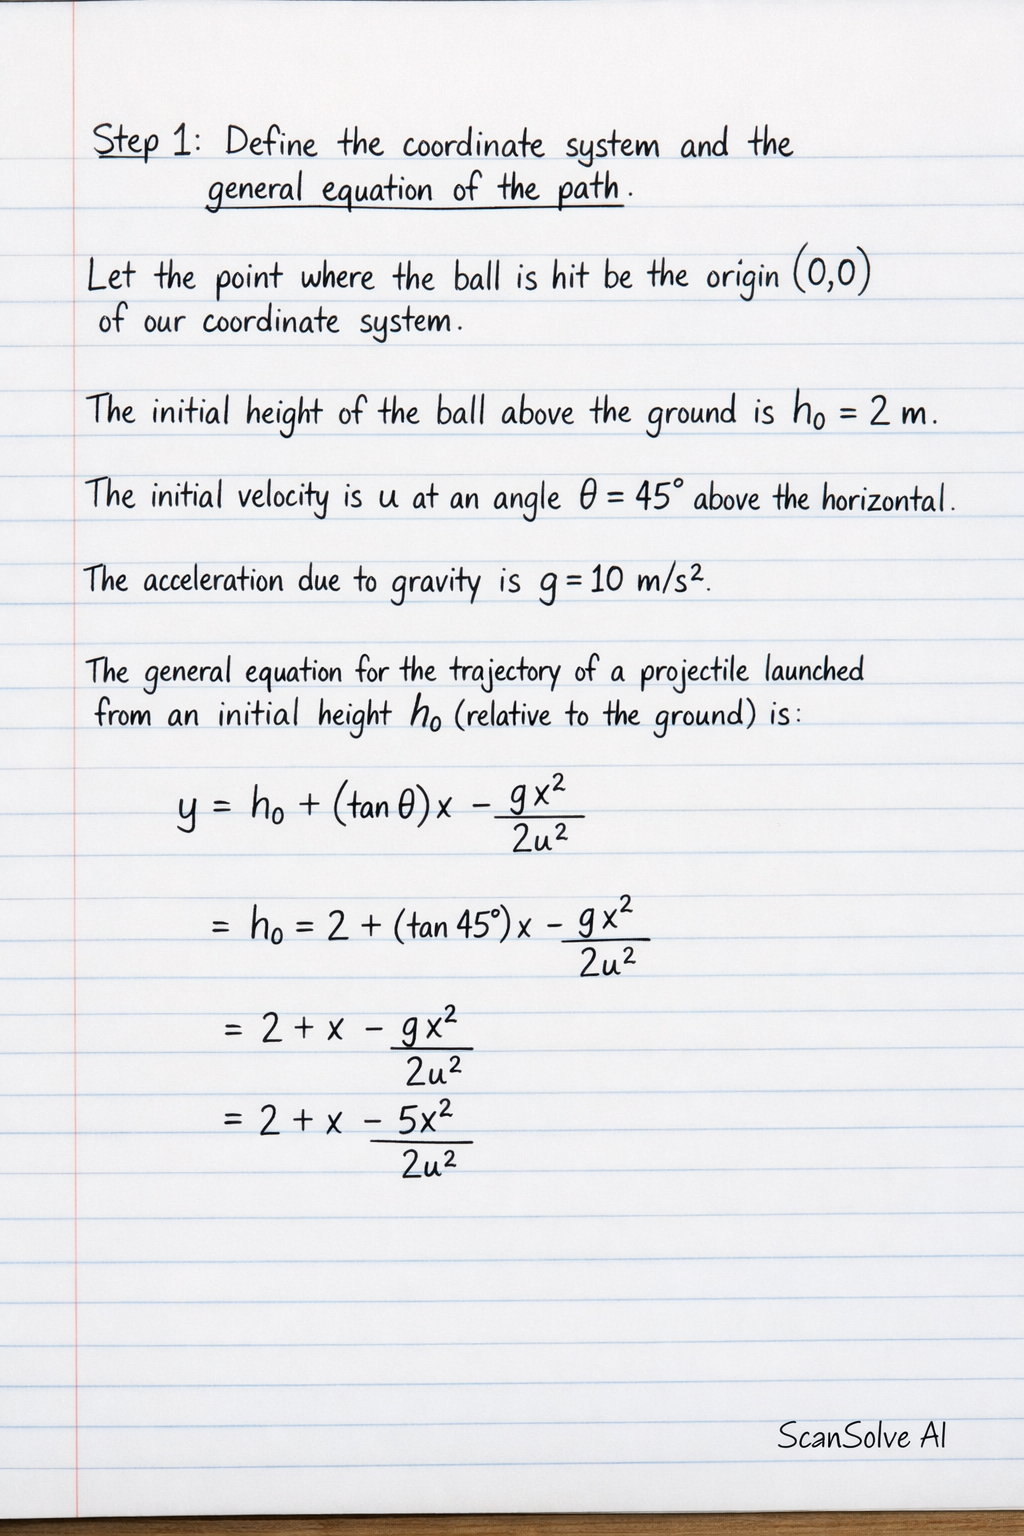 Step 1: Define the coordinate system and the
general equation of the path.
Let the point where the ball is hit be the origin (0,0)
of our coordinate system.
The initial height of the ball above the ground is h₀ = 2 m.
The initial velocity is u at an angle θ = 45° above the horizontal.
The acceleration due to gravity is g = 10 m/s².
The general equation for the trajectory of a projectile launched
from an initial height h₀ (relative to the ground) is:
y = h₀ + (tan θ)x − gx²/2u²
= h₀ = 2 + (tan 45°)x − gx²/2u²
= 2 + x − gx²/2u²
= 2 + x − 5x²/2u²
ScanSolve AI